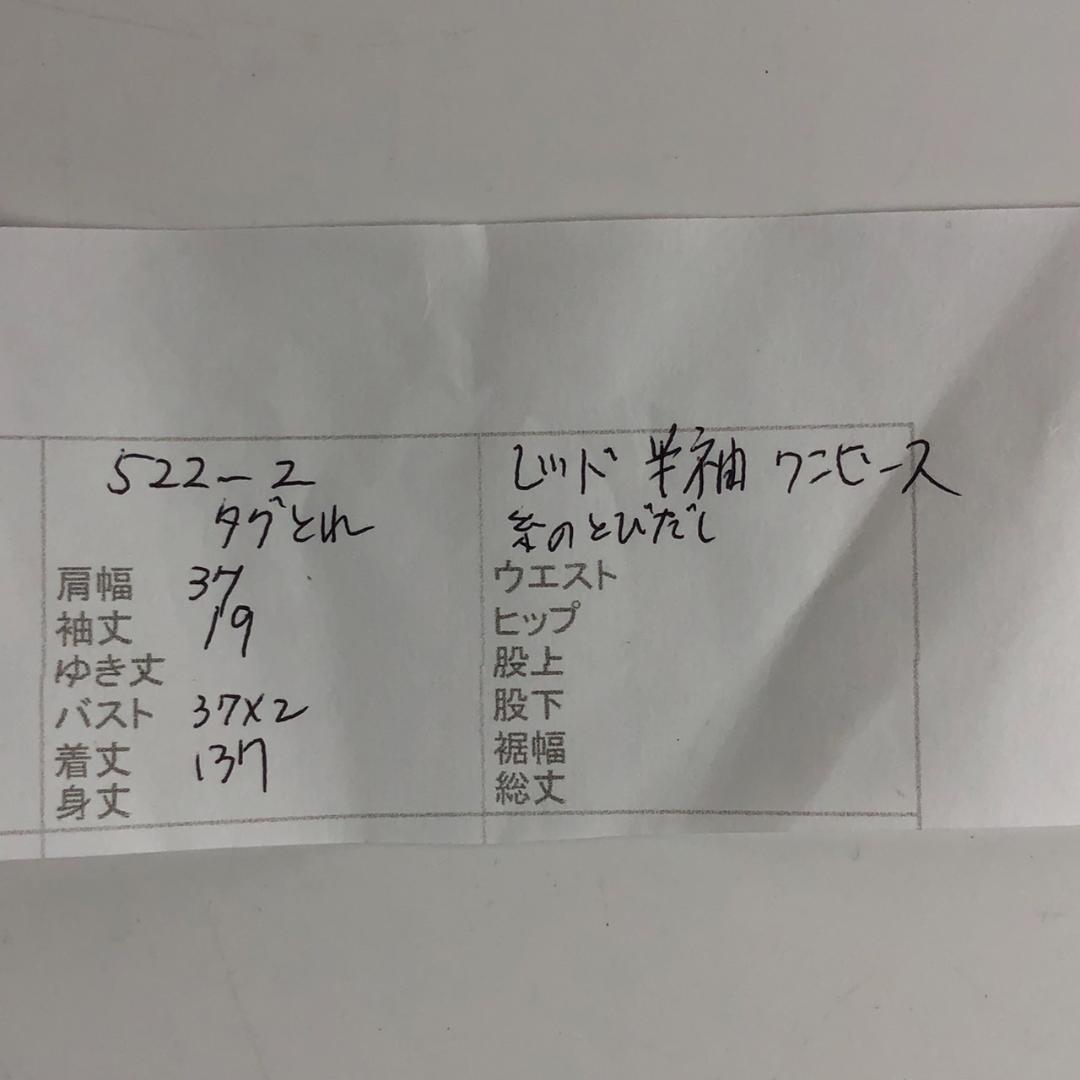 522-2
タグとれ
肩幅 37
袖丈 19
ゆき丈
バスト 37×2
着丈 137
身丈
レッド 半袖 ワンピース
糸のとびだし
ウエスト
ヒップ
股上
股下
裾幅
総丈